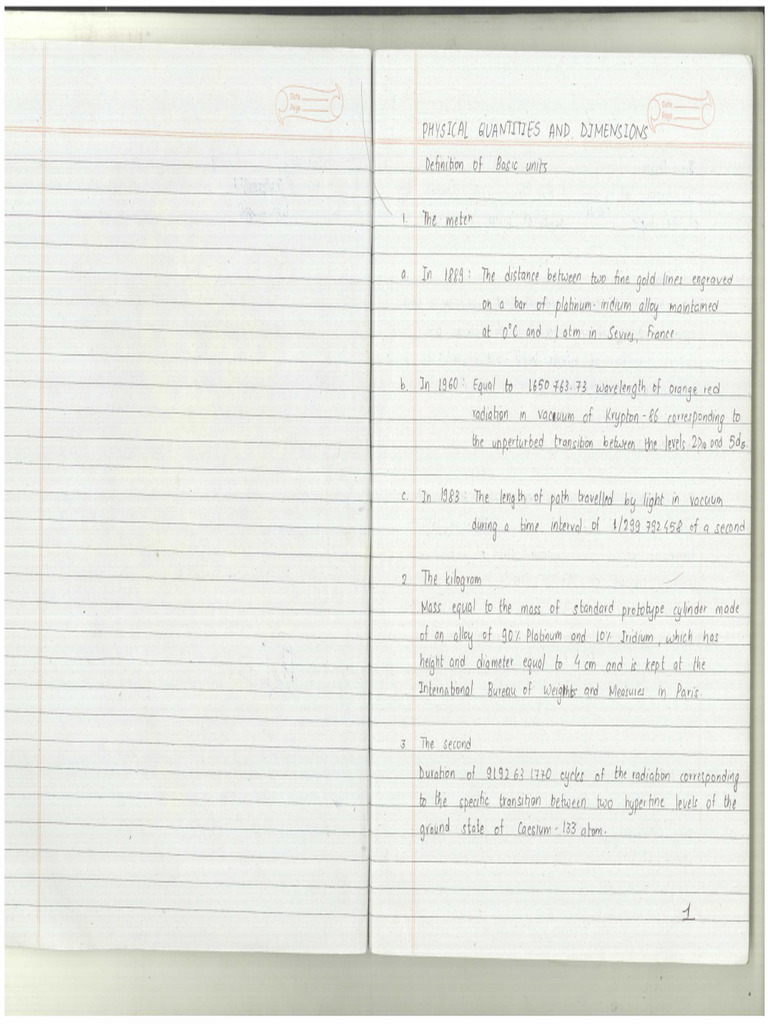 Date
Page
Date
Page
PHYSICAL QUANTITIES AND DIMENSIONS
Definition of Basic units
1. The meter
a. In 1889: The distance between two fine gold lines engraved
on a bar of platinum-iridium alloy maintained
at 0°C and 1 atm in Sevres, France
b. In 1960: Equal to 1650 763.73 wavelength of orange red
radiation in vacuum of Krypton-86 corresponding to
the unperturbed transition between the levels and 5d5
c. In 1983: The length of path travelled by light in vacuum
during a time interval of 1/299 792 458 of a second
2 The kilogram
Mass equal to the mass of standard prototype cylinder made
of an alloy of 90% Platinum and 10% Iridium, which has
height and diameter equal to 4 cm and is kept at the
International Bureau of Weights and Measures in Paris.
3. The second
Duration of 9192 63 1770 cycles of the radiation corresponding
to the specific transition between two hyperfine levels of the
ground state of Caesium-133 atom.
1